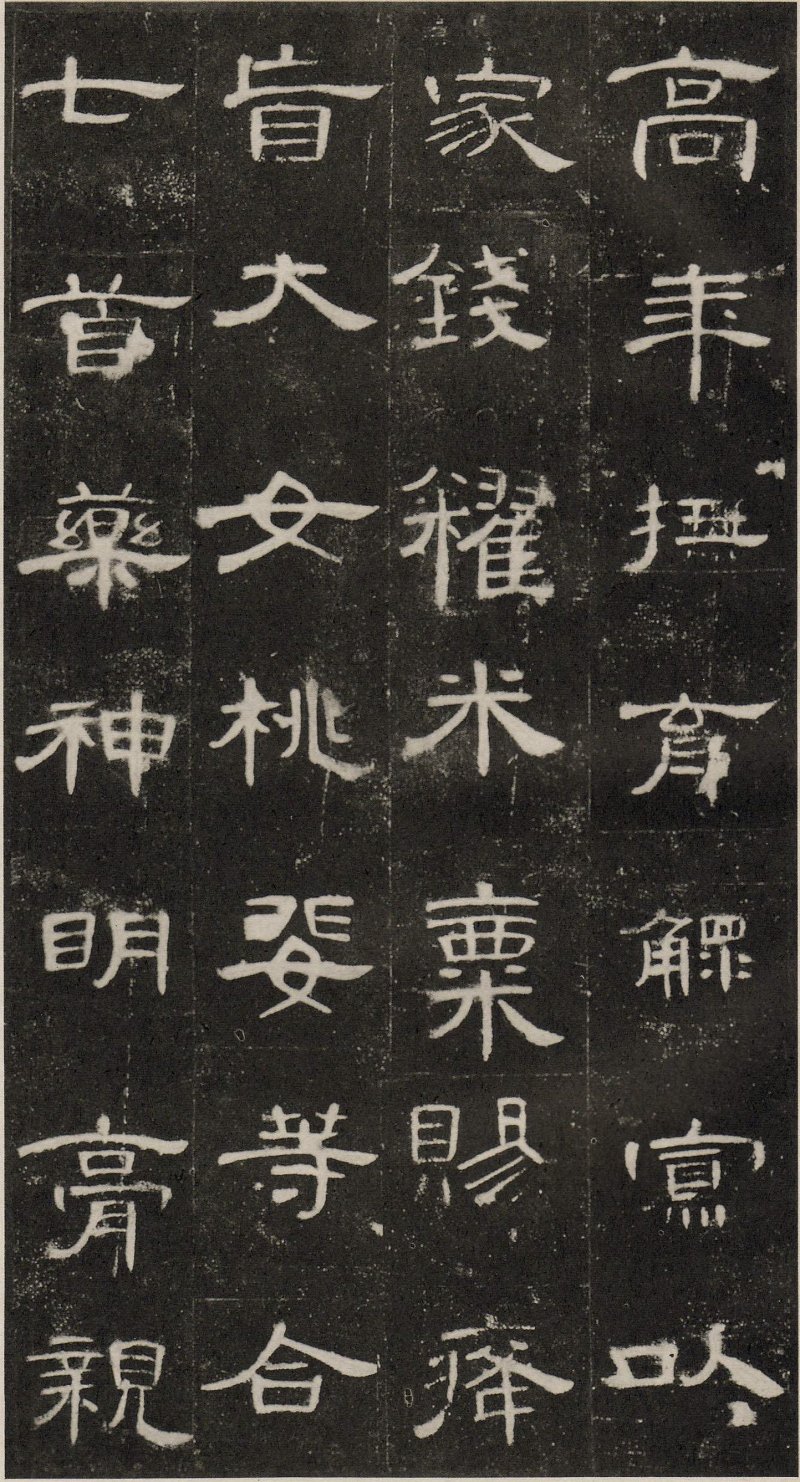 高年撫育鰥寡以
家錢糴米粟賜癃
盲大女桃婓等合
七首藥神明膏親